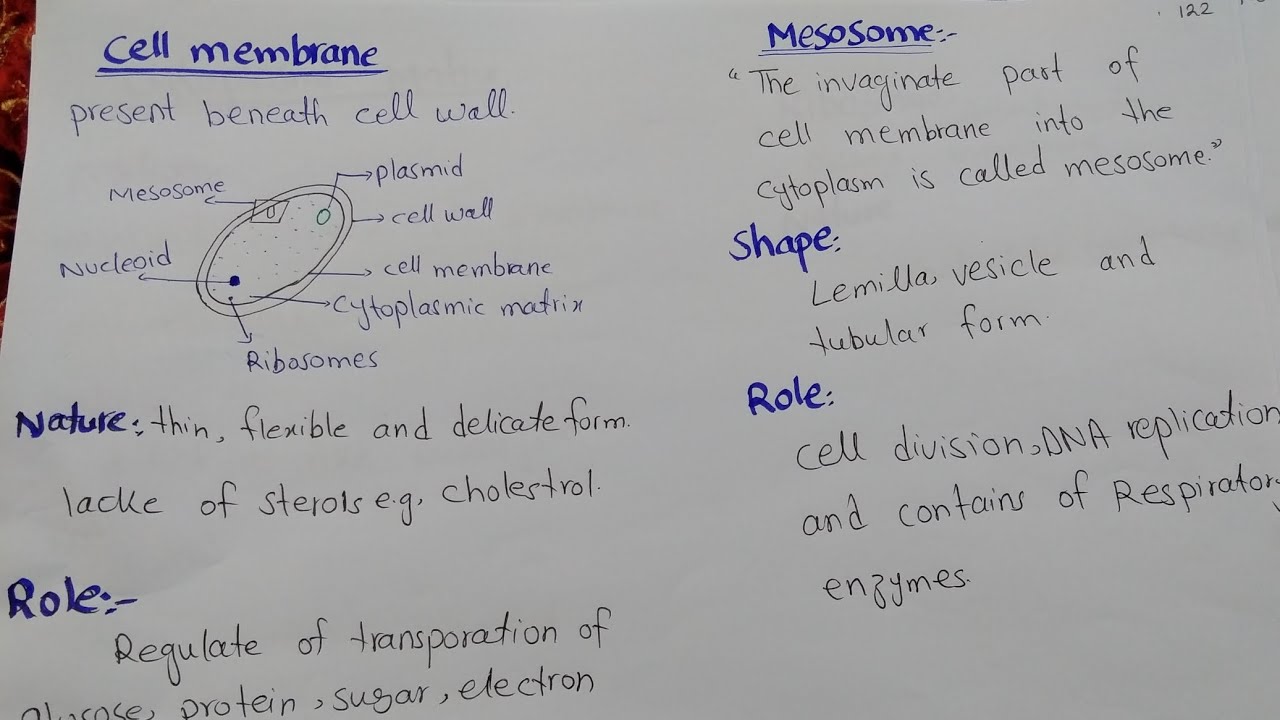 Cell membrane
present beneath cell wall.
Mesosome
plasmid
cell wall
Nucleoid
cell membrane
Cytoplasmic matrix
Ribosomes
Nature: thin, flexible and delicate form.
lacke of sterols e.g, cholestrol.
Role:-
Regulate of transporation of
glucose, protein, sugar, electron
122
Mesosome:-
"The invaginate part of
cell membrane into the
cytoplasm is called mesosome."
Shape:
Lemilla, vesicle and
tubular form.
Role:
cell division, DNA replication,
and contains of Respirator
enzymes.